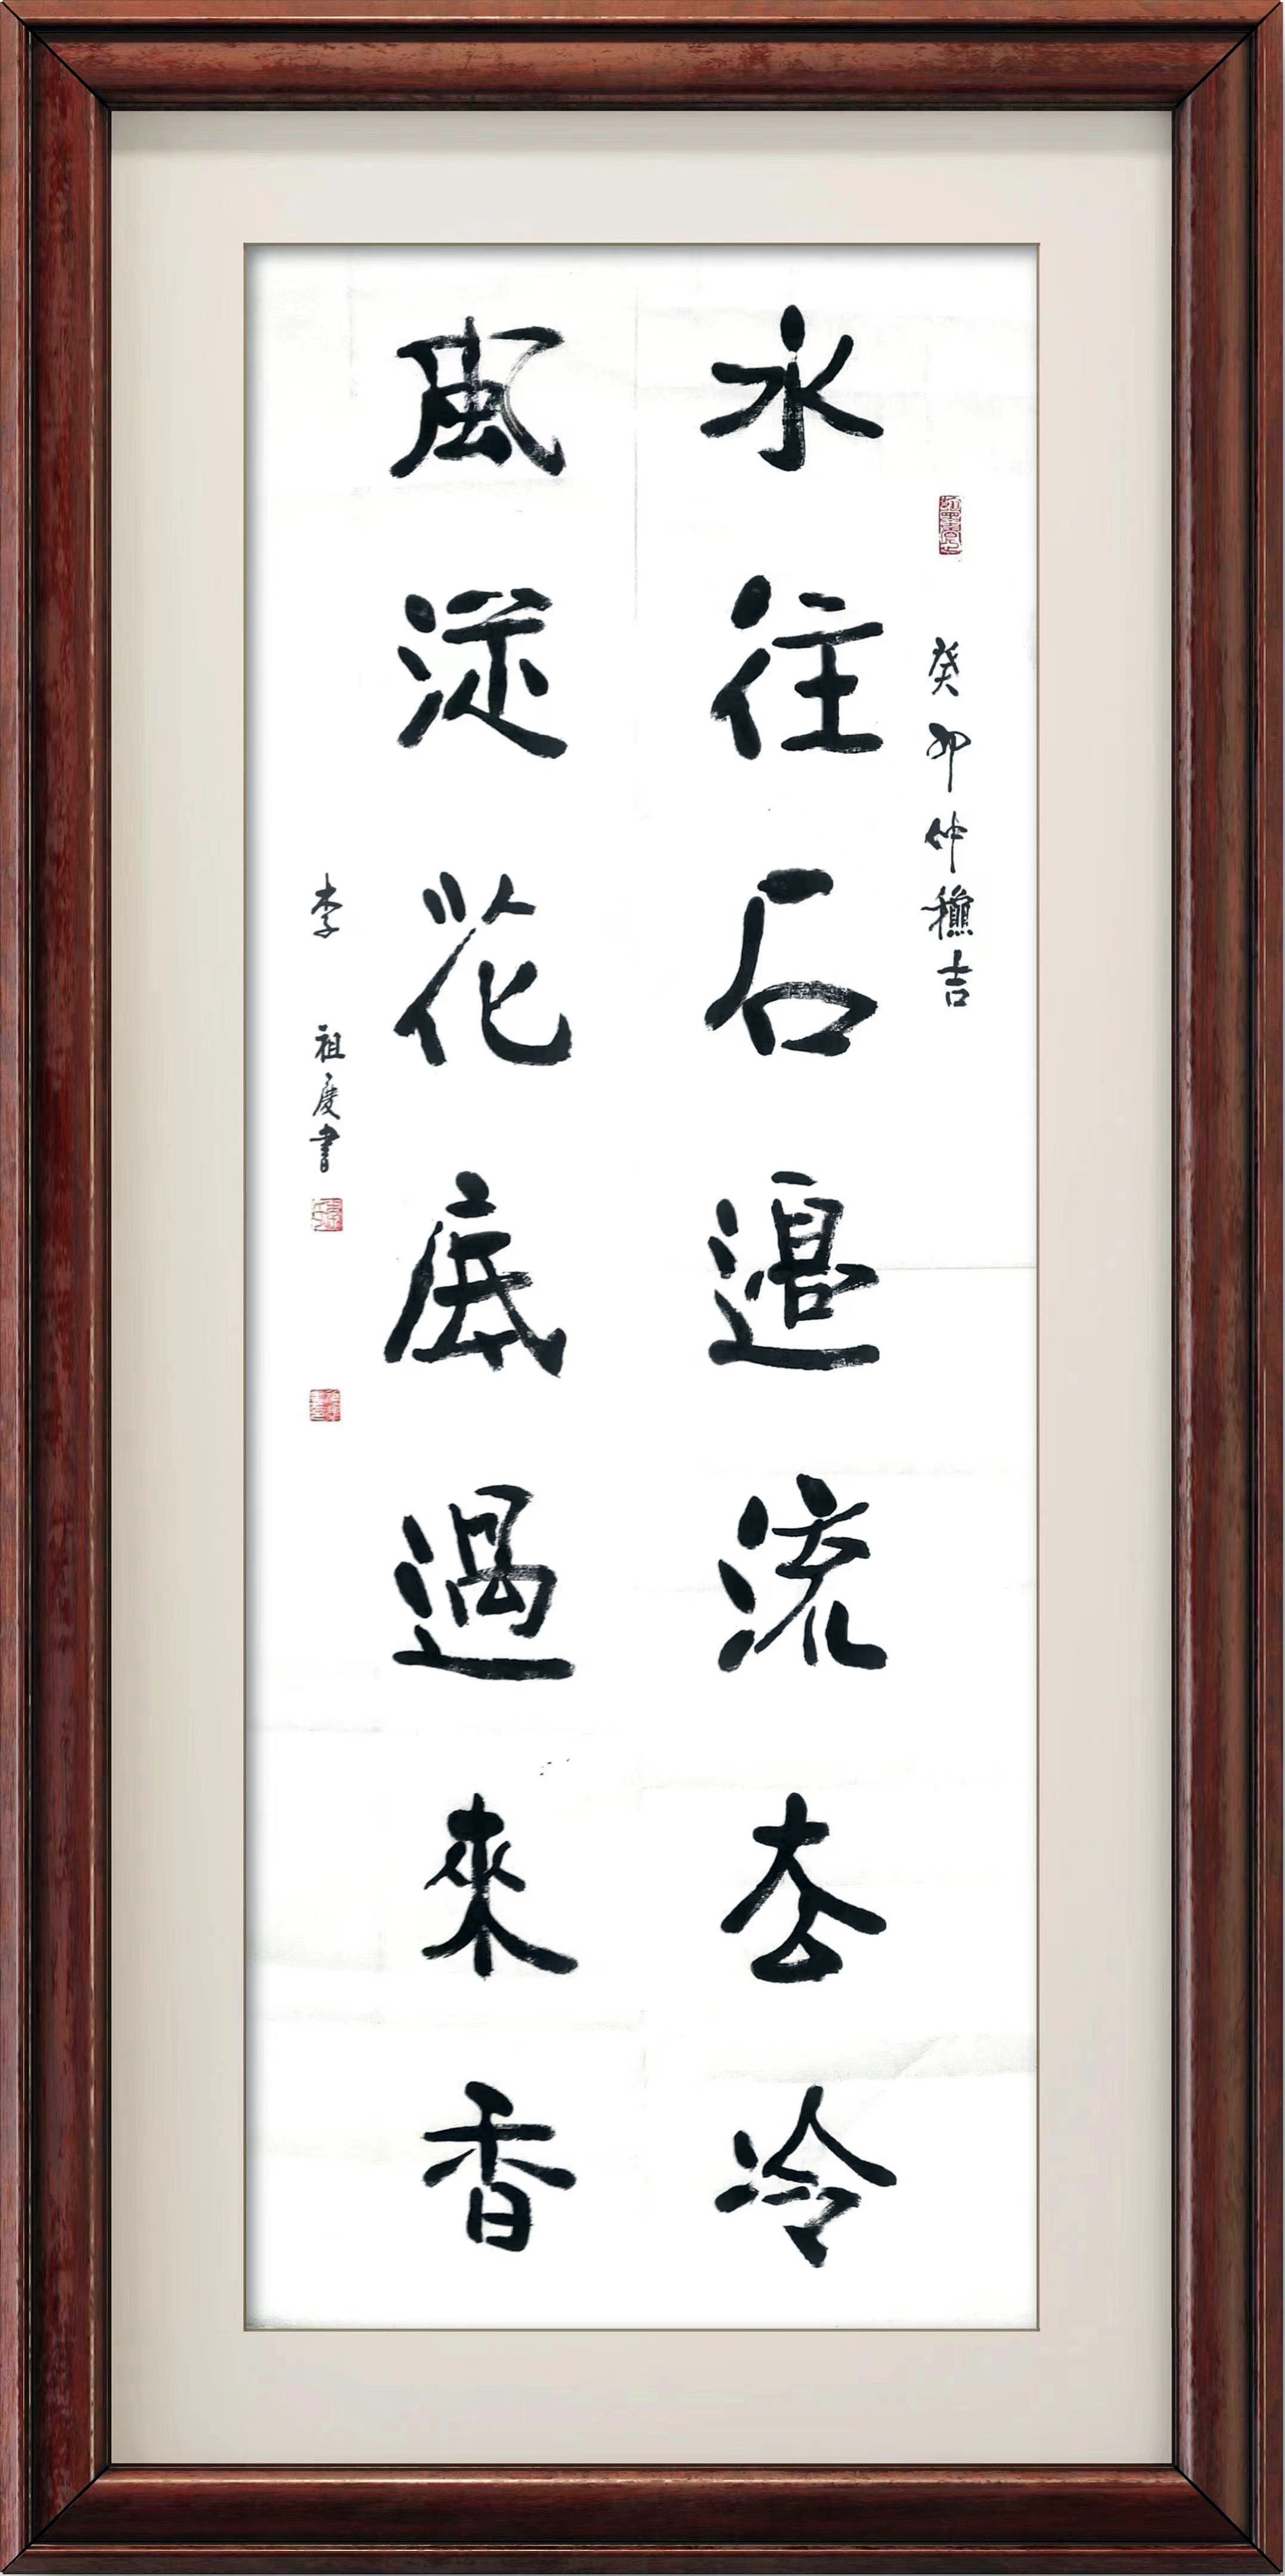 癸卯仲龝吉
水往石邉流去冷
風從花底過來香
李祖慶書